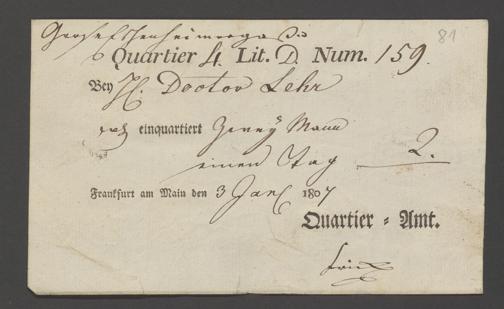 Große Eschenheimergaß
81
Quartier 4. Lit. D. Num. 159.
Bey H. Doctor Lehr
einquartiert Zwey Mann
einen Tag 2.
Frankfurt am Main den 3 Jan 1807
Quartier-Amt.